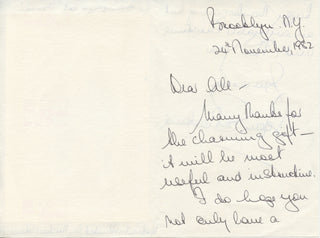 Brooklyn. N.Y.
24th November, 1982
Dear
Many thanks for
the charming gift —
it will be most
useful and instructive.
I do hope you
not only have a